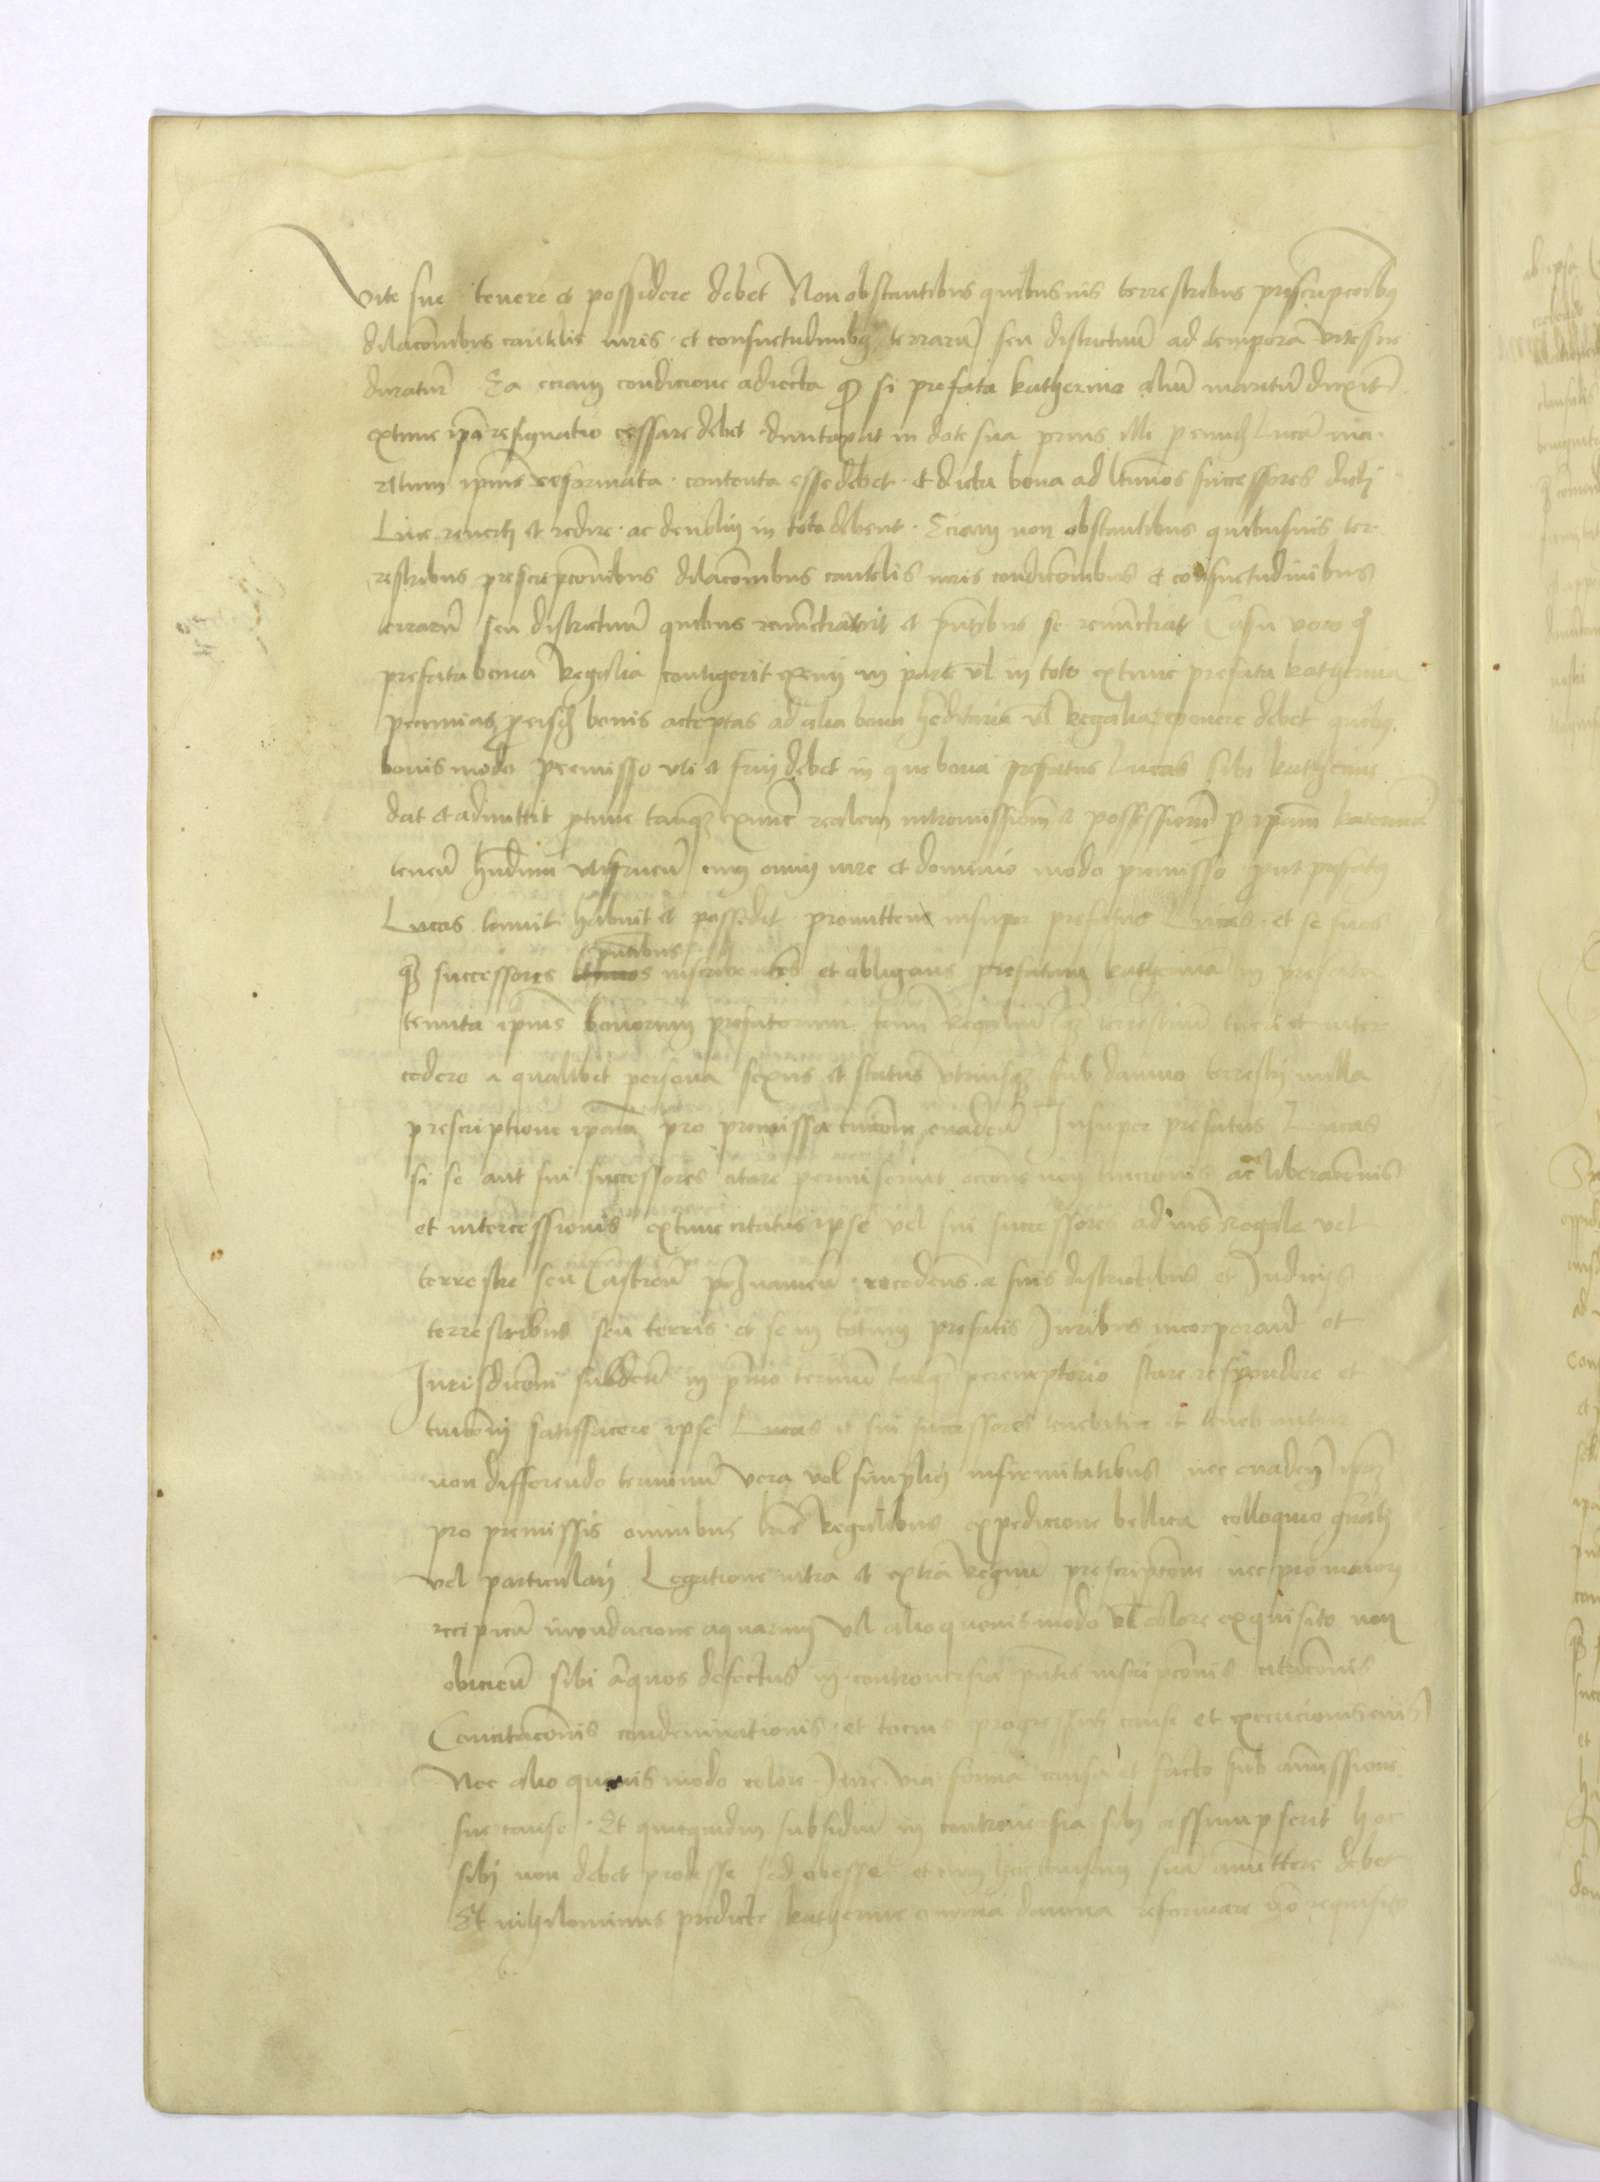 vite sue tenere et possidere debet Non obstantibus quibusuis terrestribus prescripcoībus
dilacoībus cautelis iuris et consuetudinibus terrarū seu districtuū ad tempora vite sue
duraturū Ea eciam condicione adiecta qd si prefata katherina aliū maritū duxerit
extunc ipa resignatio cessare debet duntaxat in dote sua prius illi per eundē Lucā ma-
ritum ipius reformata contenta esse debet et dicta bona ad ltimos successores dicti
Luce reuerti et redire ac deuolui in toto debent Eciam non obstantibus quibusuis ter-
restribus prescripconibus dilaconibus cautelis iuris condiconibus et consuetudinibus
terrarū seu districtuū quibus renūctiauit et pntibus se renūctiat Casu vero quo
prefata bona Regalia contigerit exemi in parte vl in toto extunc prefata katherina
pecunias pro eisdē bonis acceptas ad alia bona hēditaria vl Regalia conuere debet quibus
bonis modo premisso vti et frui debet in que bona prefatus Lucas sibi katherine
dat et admittit extunc tanquā exnunc realem intromissionē et possessionē per ipam katerinā
tenendā hndam vtifruendā cum omni iure et dominio modo premisso put prefatus
Lucas tenuit habuit et possedit promittens insuper prefatus Lucas et se suos
que successores ltimos pntibus inscribentes et obligans prefatam katherinā in prefatorum
tenuta ipius bonorum prefatorum tam Regaliū quam terrestriū tueri et inter
cedere a qualibet persona sexus et status vtriusque sub damno terrestri nulla
prescriptione ipam pro premissa tuicone euadendū Insuper prefatus Lucas
si se aut sui successores citare permiserint occone non tuicionis ac liberaconis
et intercessionis extunc citatus ipse vel sui successores ad ius Regale vel
terrestre seu Castreū recedens a suis districtibus et Iudiciis
terrestribus seu terris et se in totum prefatis Iuribus incorporand et
Iurisdiconi subdendū in pmo termino tanq peremptorio stare respondere et
tuiconi satisfacere ipse Lucas et sui successores tenebitur et tenebuntur
non differendo terminū vera vel simplici infirmitatibus nec euadendū ipm
pro premissis omnibus lris Regalibus expedicione bellica colloquio gnali
vel particulari Legatione intra et extra regnū prescripcone nec pro maiori
recipiendū inundacione aquarum vel alio quouismodo vl colore exquisito non
obiciendū sibi aliquos defectus in controuersia pntis inscripconis citaconis
Concitaconis condemnationis et tocius progressus cause et execucionis eius
Nec alio quouis modo colore Iure via forma causa et facto sub amissione
sue cause Et quicquidem subsidiū in controuersia sibi assumpserit hoc
sibi non debet prodesse sed obesse et cum hoc causam suā amittere debet
Et nihilominus predicte katherine omnia damna reformare